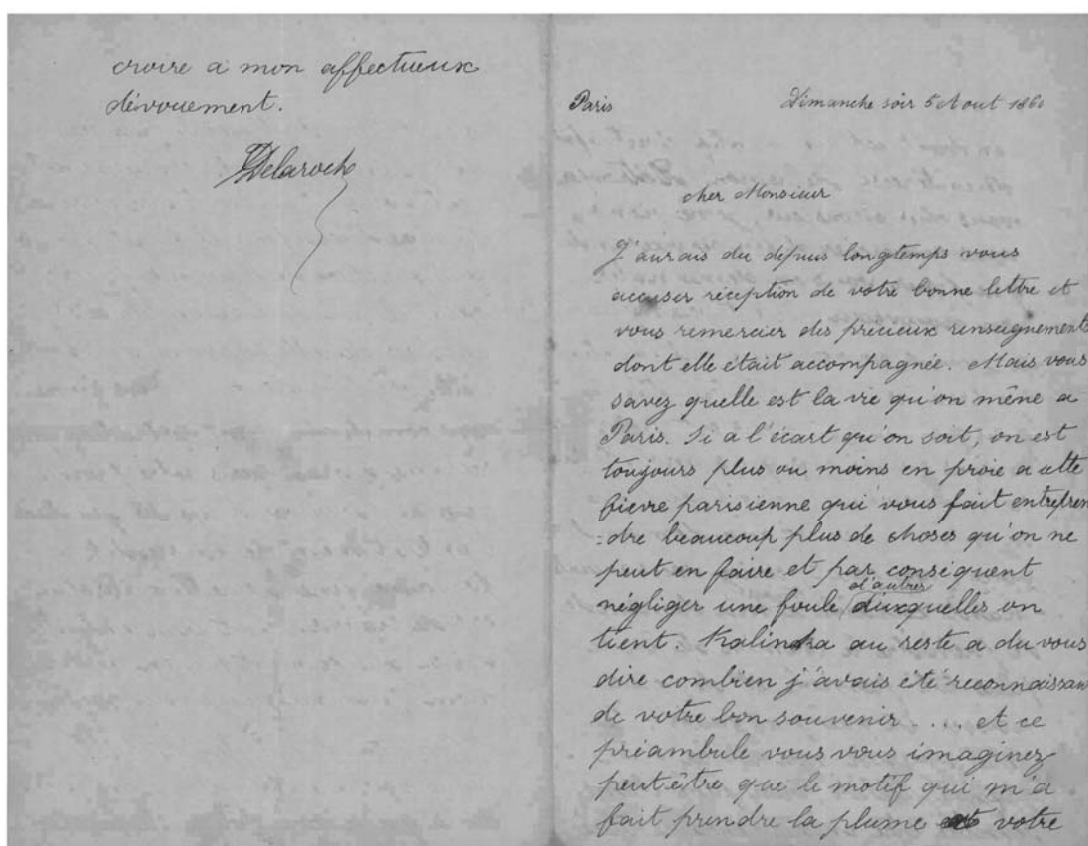 croire a mon affectueux
dévouement.
Delaroche
Paris Dimanche soir 5 Aout 1860
cher Monsieur
J'aurais du depuis longtemps vous
accuser réception de votre bonne lettre et
vous remercier des précieux renseignements
dont elle était accompagnée. Mais vous
savez quelle est la vie qu'on mène a
Paris. Si a l'écart qu'on soit, on est
toujours plus ou moins en proie a cette
fievre parisienne qui vous fait entrepren
=dre beaucoup plus de choses qu'on ne
peut en faire et par conséquent
d'autres
négliger une foule auxquelles on
tient. Kalinka au reste a du vous
dire combien j'avais été reconnaissant
de votre bon souvenir .... et ce
préambule vous vous imaginez
peut-être que le motif qui m'a
fait prendre la plume est votre